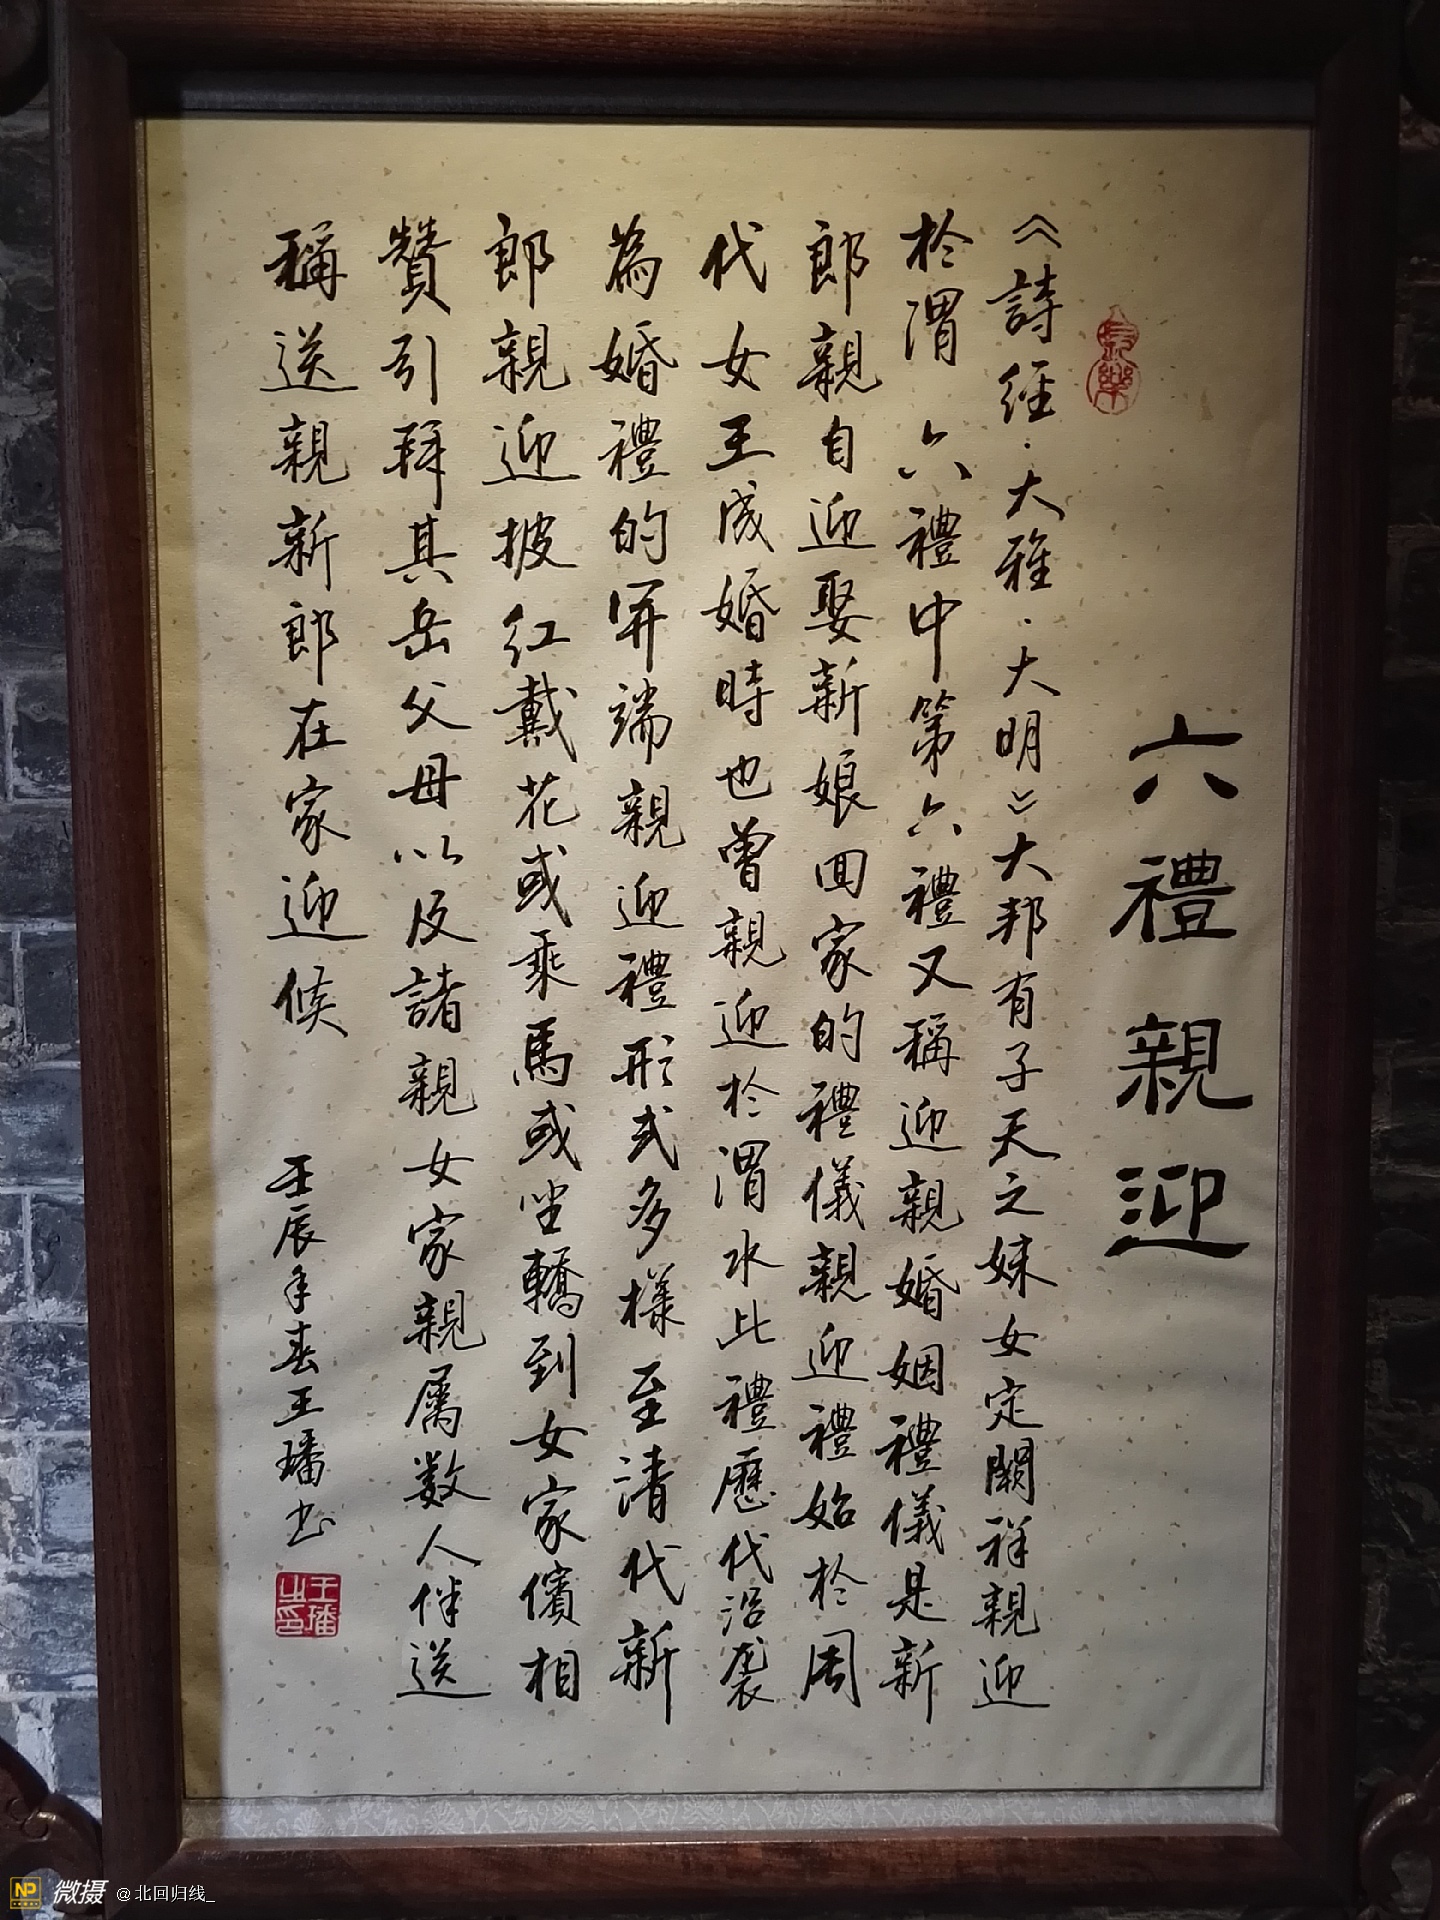 六禮親迎
長樂
《詩經·大雅·大明》大邦有子天之妹女定闕祥親迎
於渭六禮中第六禮又稱迎親婚姻禮儀是新
郎親自迎娶新娘回家的禮儀親迎禮始於周
代女王成婚時也曾親迎於渭水此禮歷代沿襲
為婚禮的開端親迎禮形式多樣至清代新
郎親迎披红戴花或乘馬或坐轎到女家儐相
贊引拜其岳父母以及諸親女家親屬数人伴送
稱送親新郎在家迎候
壬辰年春王璠书
王璠之印
NP 微摄 @北回归线_